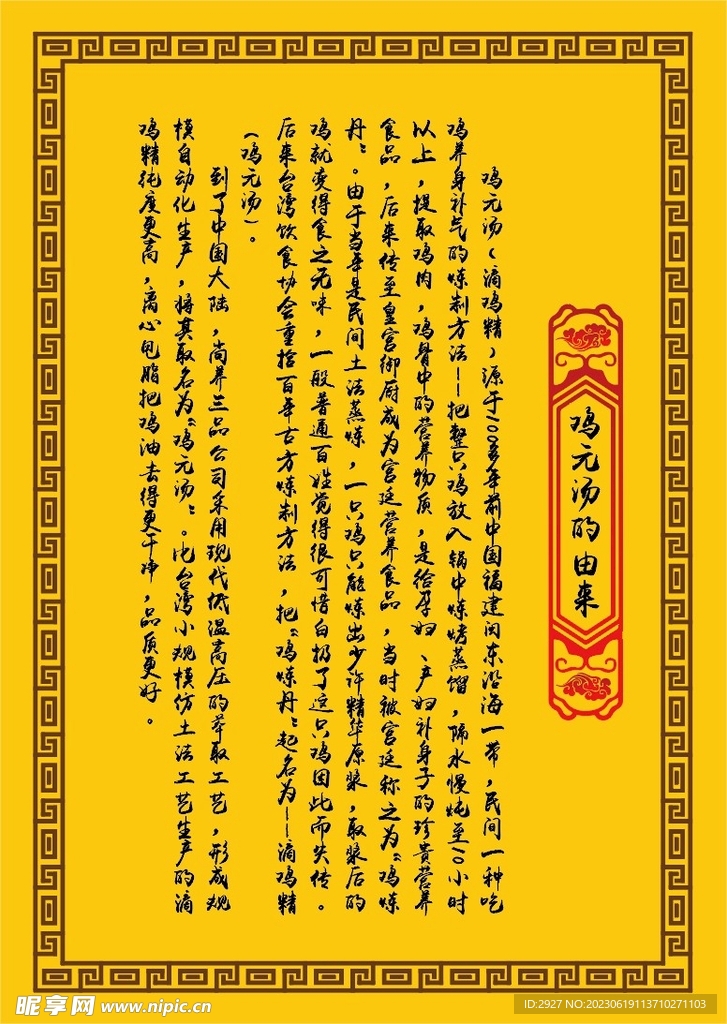 鸡元汤的由来
鸡元汤（滴鸡精，源于200多年前中国福建闽东沿海一带，民间一种吃
鸡养身补气的炼制方法——把整只鸡放入锅中炼烤蒸馏，隔水慢炖至10小时
以上，提取鸡肉，鸡骨中的营养物质，是给孕妇、产妇补身子的珍贵营养
食品，后来传至皇宫御厨成为宫廷营养食品，当时被宫廷称之为“鸡炼
丹”。由于当年是民间土法蒸炼，一只鸡只能炼出少许精华原浆，取浆后的
鸡就变得食之无味，一般普通百姓觉得很可惜白扔了这只鸡因此而失传。
后来台湾饮食协会重拾百年古方炼制方法，把“鸡炼丹”起名为——滴鸡精
（鸡元汤）。
到了中国大陆，尚养三品公司采用现代低温高压的萃取工艺，形成规
模自动化生产，将其取名为“鸡元汤”。比台湾小规模仿土法工艺生产的滴
鸡精纯度更高，离心包脂把鸡油去得更干净，品质更好。
昵享网 www.nipic.cn
ID:2927 NO:20230619113710271103